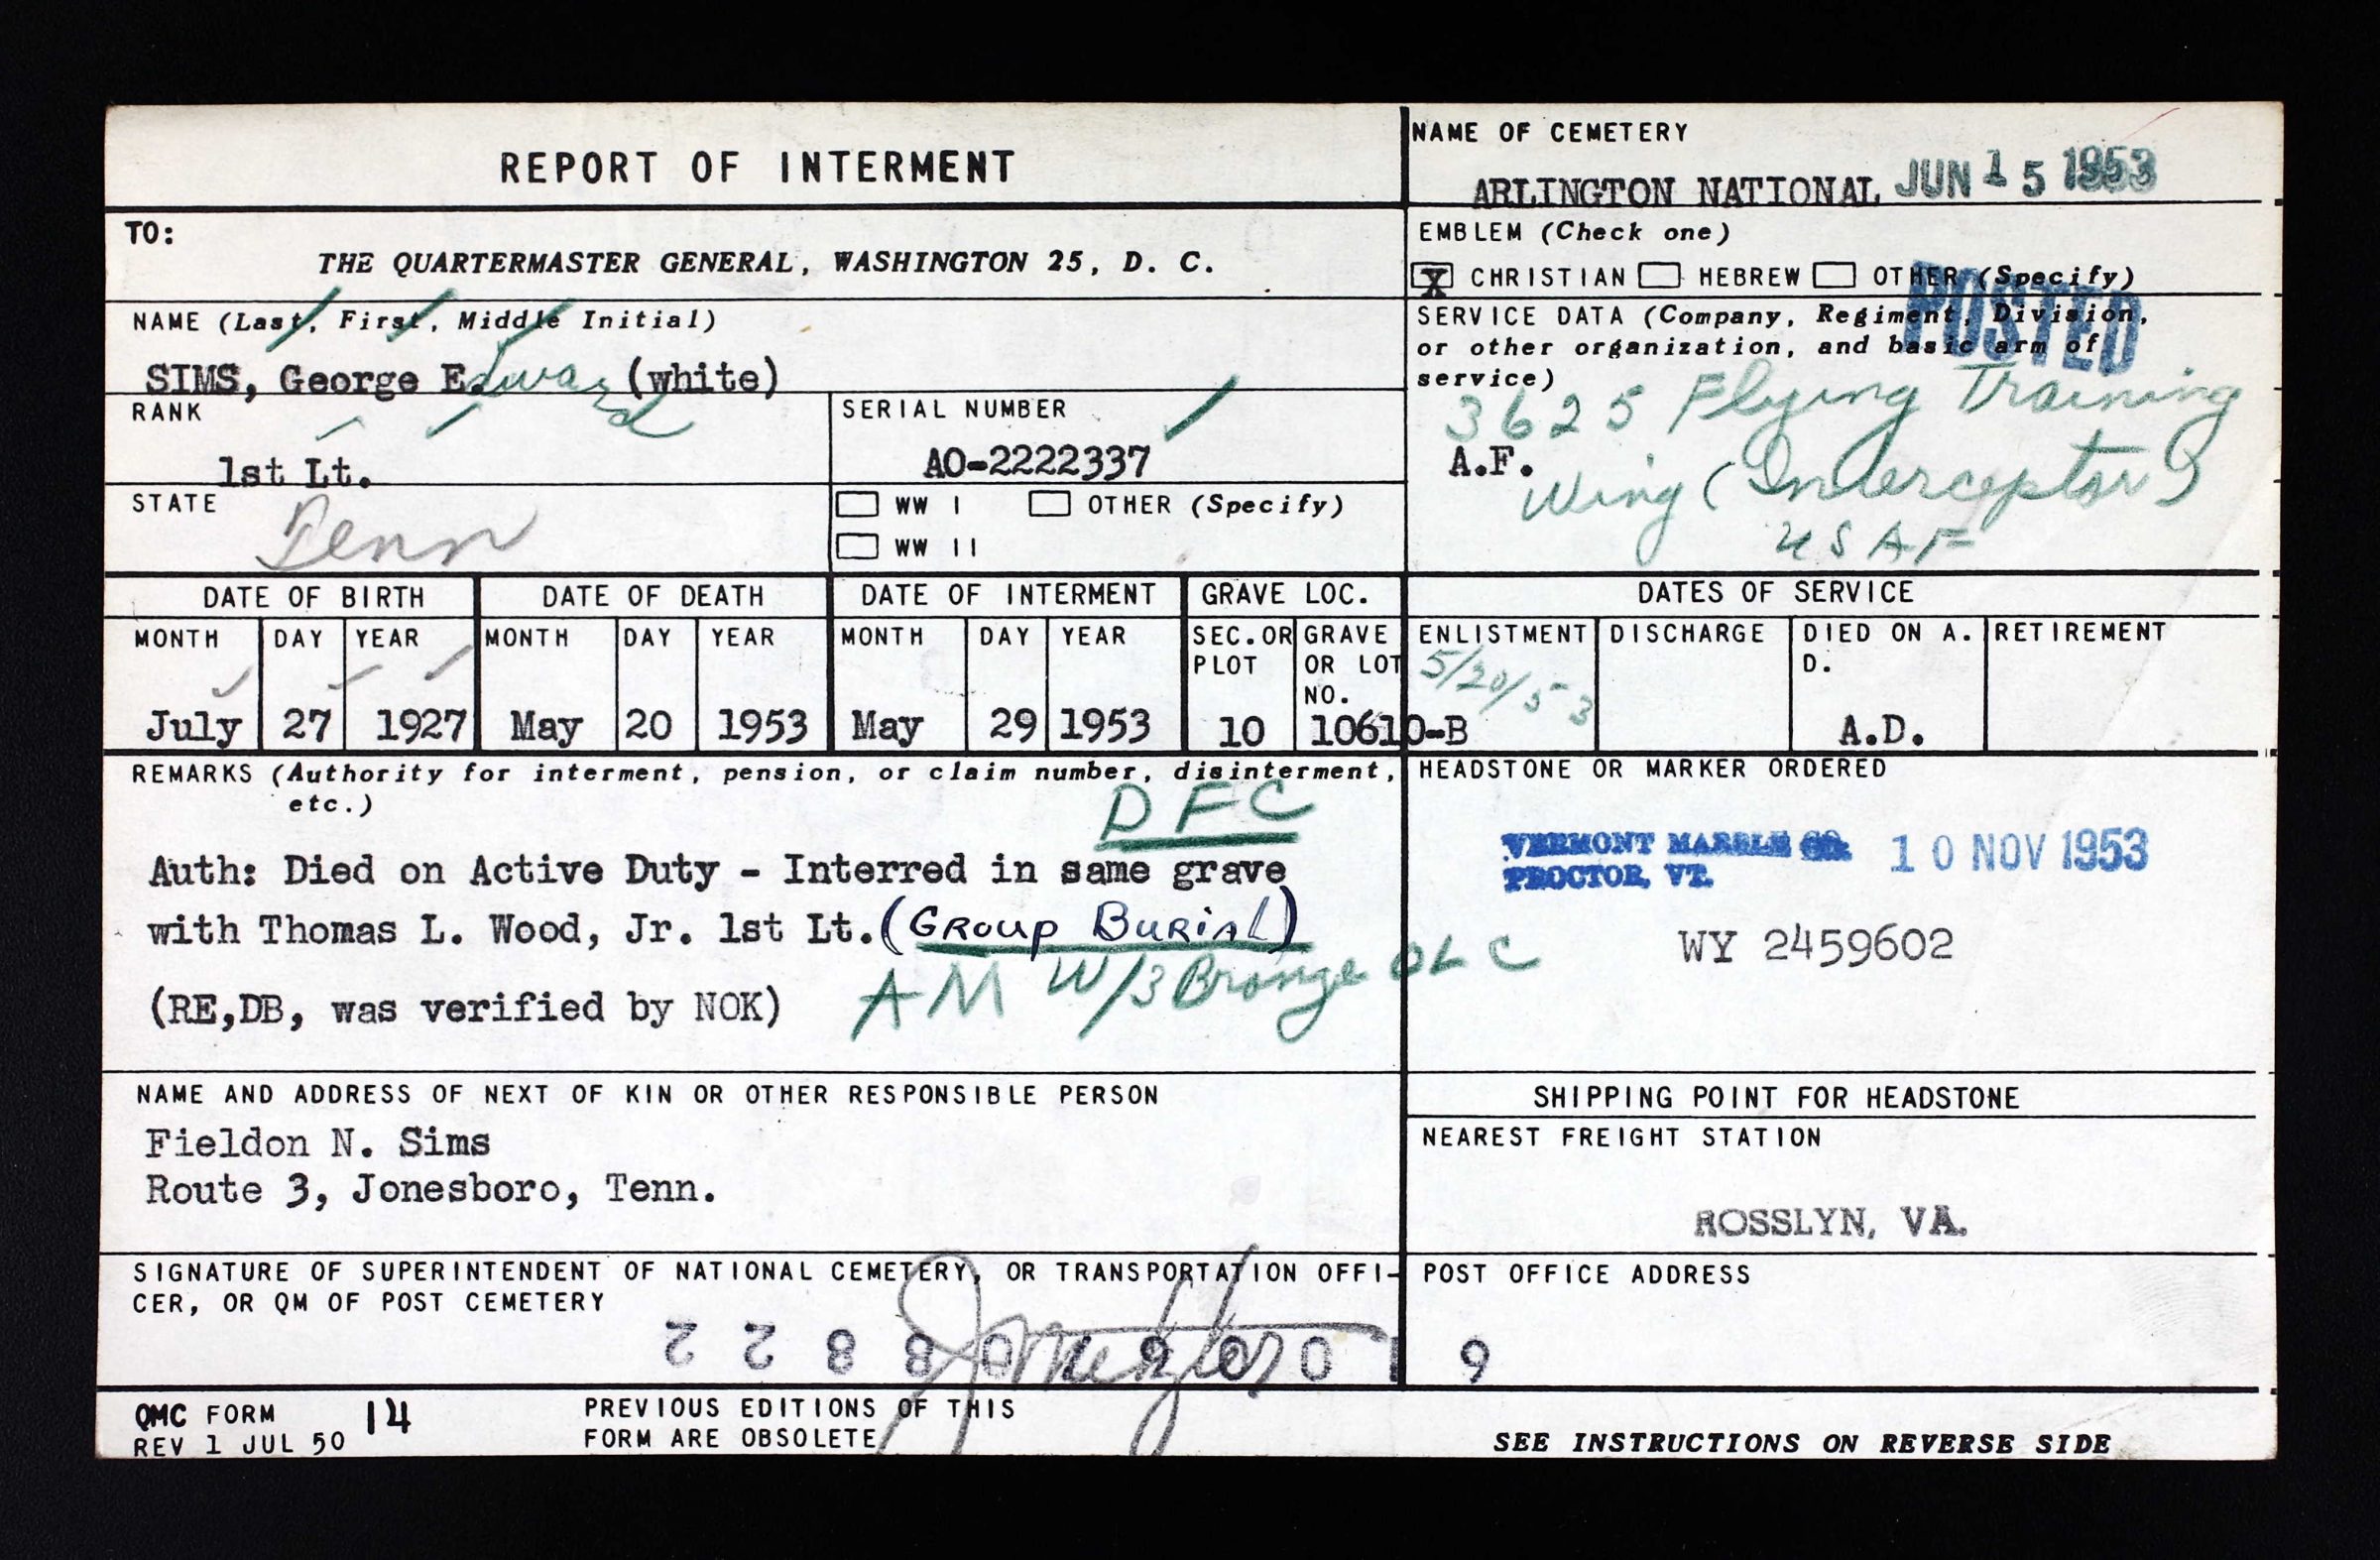 REPORT OF INTERMENT
NAME OF CEMETERY
ARLINGTON NATIONAL JUN 15 1953
TO:
THE QUARTERMASTER GENERAL, WASHINGTON 25, D. C.
EMBLEM (Check one)
X CHRISTIAN HEBREW OTHER (Specify)
POSTED
NAME (Last, First, Middle Initial)
SIMS, George Edward (white)
SERVICE DATA (Company, Regiment, Division,
or other organization, and basic arm of
service)
3625 Flying Training
A.F.
Wing (Interceptor)
USAF
RANK
1st Lt.
SERIAL NUMBER
AO-2222337
STATE
Tenn
WW I OTHER (Specify)
WW II
DATE OF BIRTH DATE OF DEATH DATE OF INTERMENT GRAVE LOC. DATES OF SERVICE
MONTH DAY YEAR MONTH DAY YEAR MONTH DAY YEAR SEC.OR PLOT GRAVE OR LOT NO. ENLISTMENT DISCHARGE DIED ON A. D. RETIREMENT
5/20/53
July 27 1927 May 20 1953 May 29 1953 10 10610-B A.D.
REMARKS (Authority for interment, pension, or claim number, disinterment,
etc.)
DFC
Auth: Died on Active Duty - Interred in same grave
with Thomas L. Wood, Jr. 1st Lt. (GROUP BURIAL)
AM W/3 Bronze OLC
(RE,DB, was verified by NOK)
HEADSTONE OR MARKER ORDERED
VERMONT MARBLE CO. 10 NOV 1953
PROCTOR, VT.
WY 2459602
NAME AND ADDRESS OF NEXT OF KIN OR OTHER RESPONSIBLE PERSON
Fieldon N. Sims
Route 3, Jonesboro, Tenn.
SHIPPING POINT FOR HEADSTONE
NEAREST FREIGHT STATION
ROSSLYN, VA.
SIGNATURE OF SUPERINTENDENT OF NATIONAL CEMETERY, OR TRANSPORTATION OFFI-
CER, OR QM OF POST CEMETERY
POST OFFICE ADDRESS
QMC FORM 14
REV 1 JUL 50
PREVIOUS EDITIONS OF THIS
FORM ARE OBSOLETE
SEE INSTRUCTIONS ON REVERSE SIDE